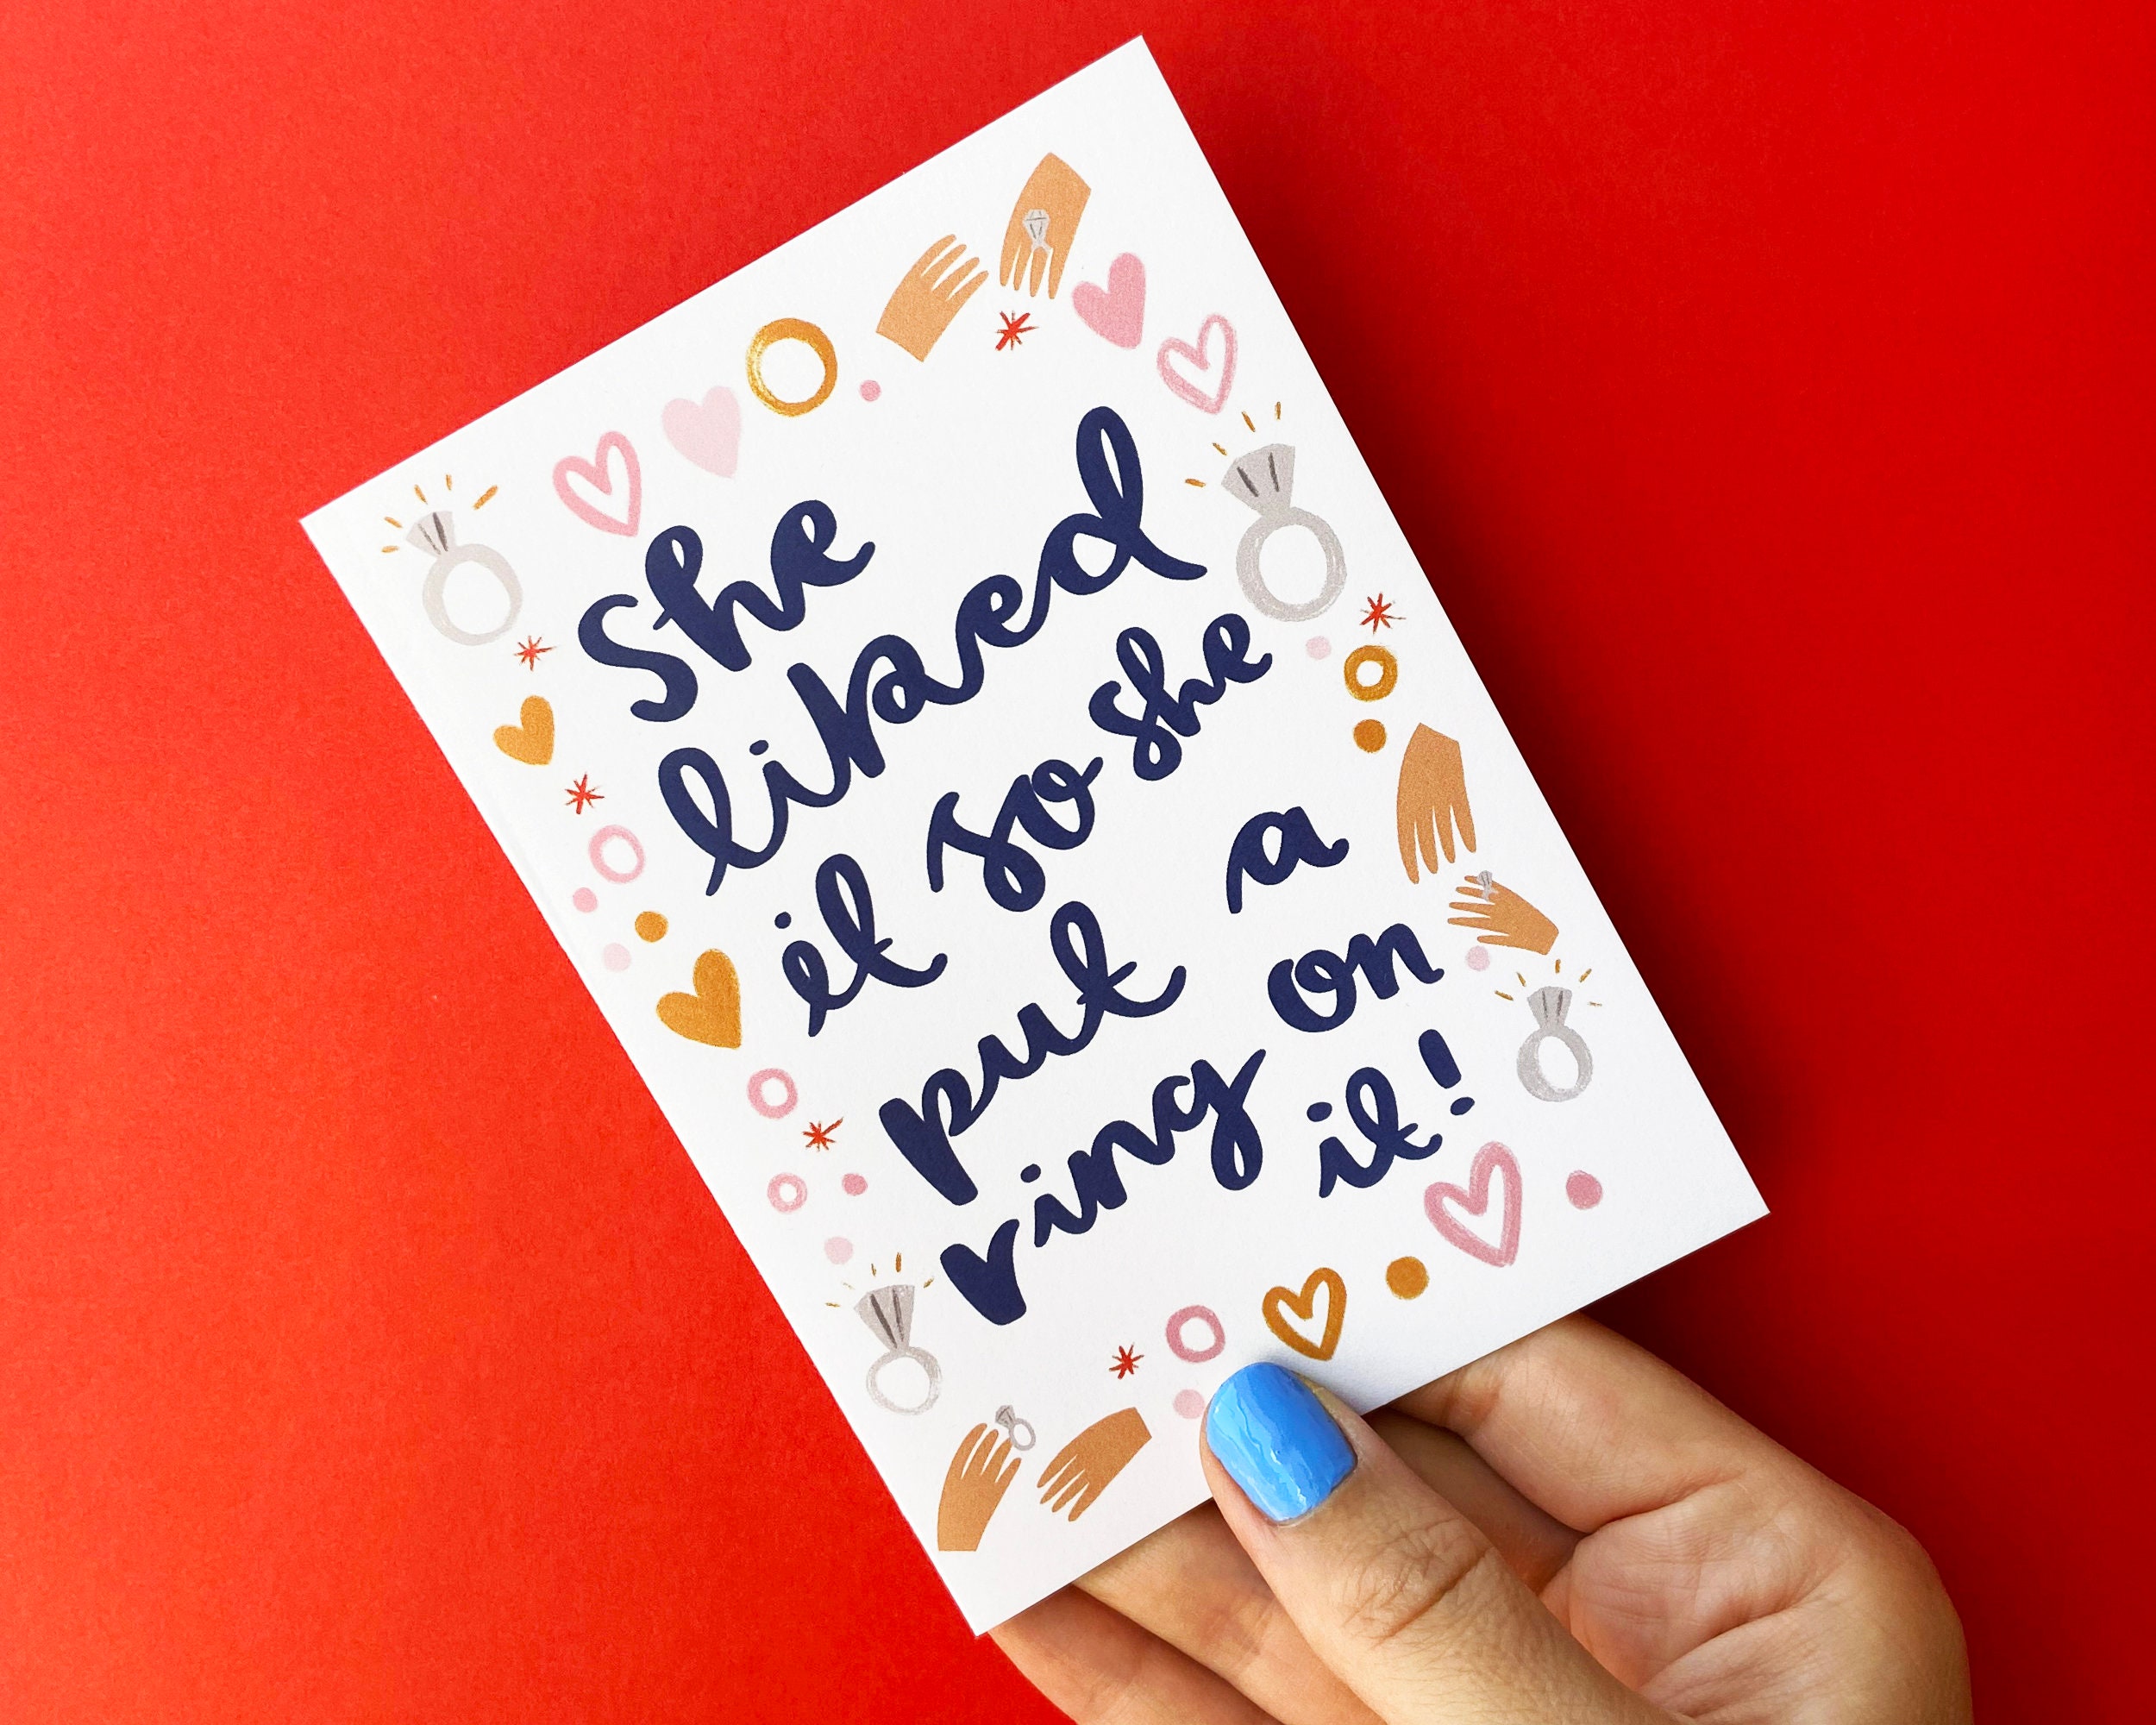 She
liked
it so she
put a
ring on
it!